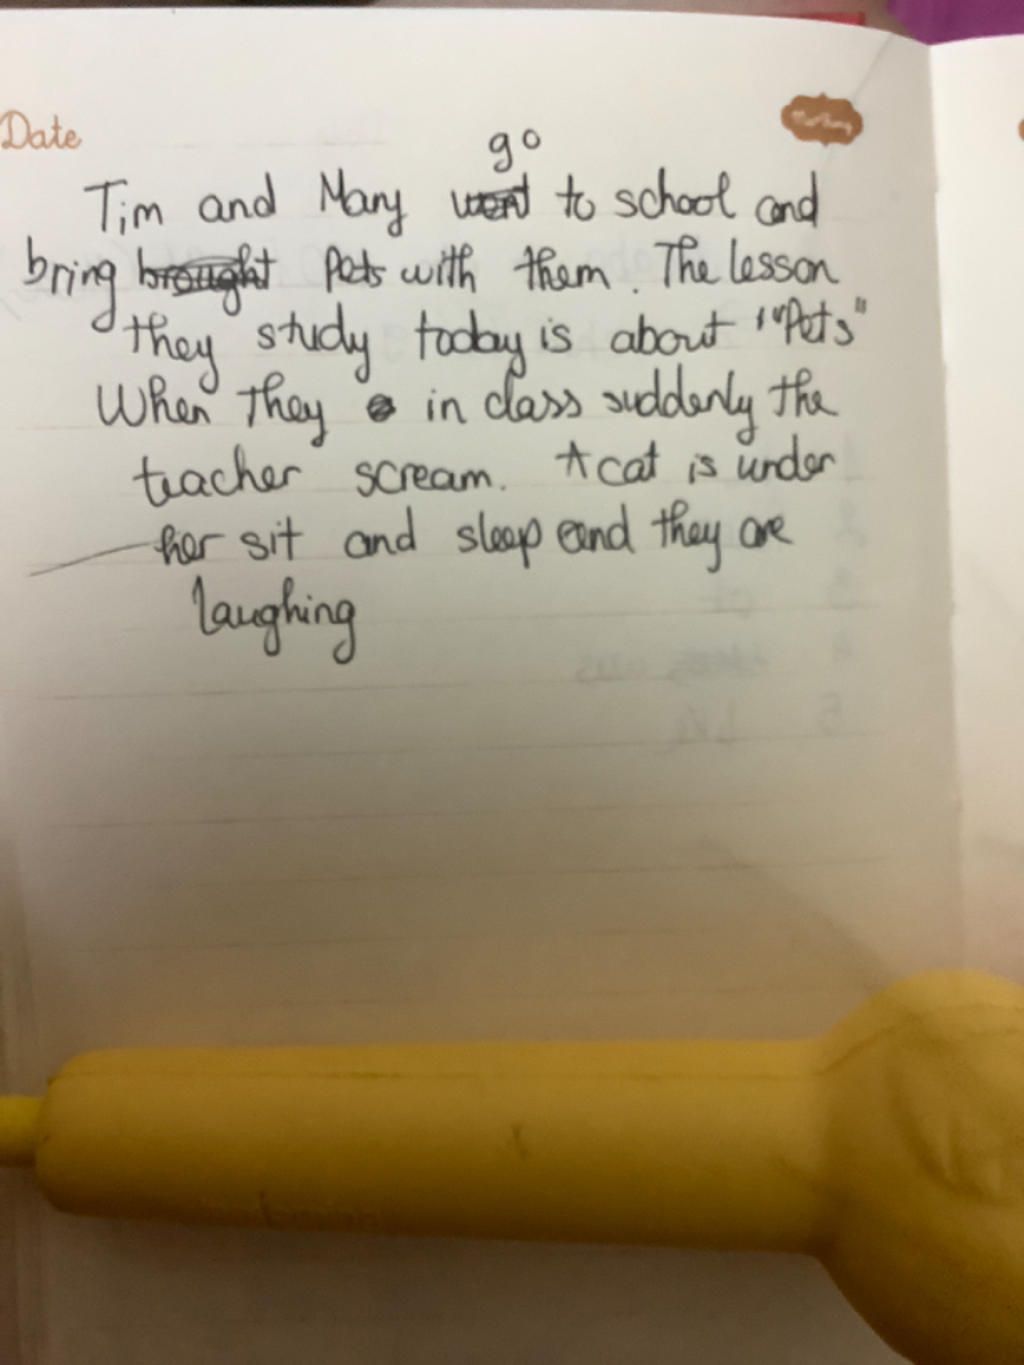 Date
go
Tim and Mary went to school and
bring brought Pets with them. The lesson
they study today is about "Pets"
When they in class suddenly the
teacher scream. A cat is under
her sit and sleep and they are
laughing